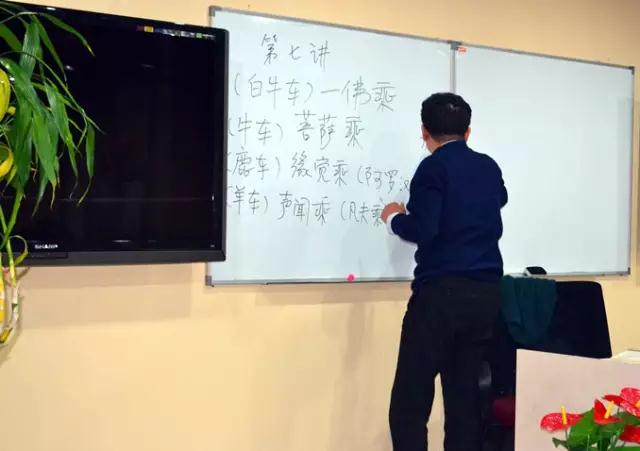 第七讲
(白牛车) 一佛乘
(牛车) 菩萨乘
(鹿车) 缘觉乘 (阿罗汉
(羊车) 声闻乘 (凡夫乘
SHARP